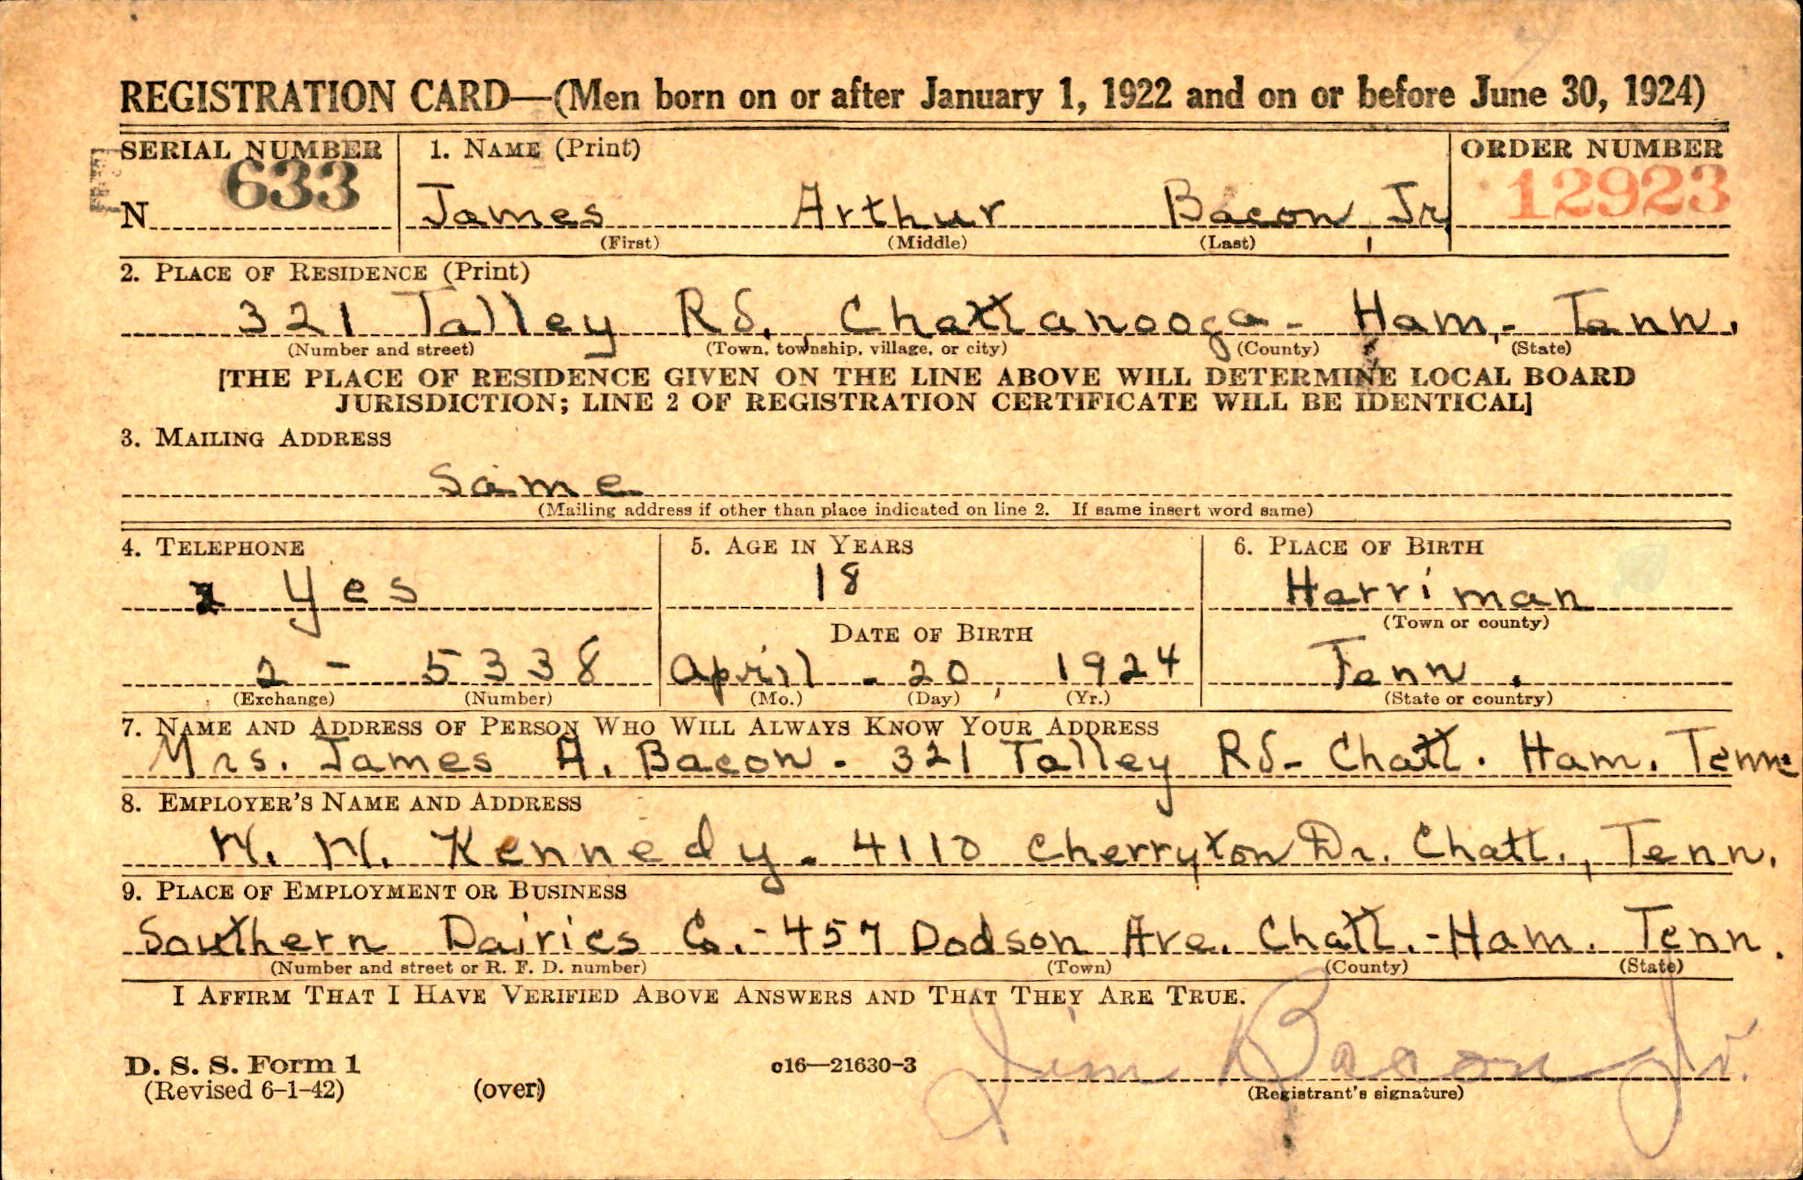 REGISTRATION CARD—(Men born on or after January 1, 1922 and on or before June 30, 1924)
SERIAL NUMBER 1. NAME (Print) ORDER NUMBER
N 633 James Arthur Bacon, Jr 12923
(First) (Middle) (Last)
2. PLACE OF RESIDENCE (Print)
321 Talley Rd. Chattanooga - Ham. - Tenn.
(Number and street) (Town, township, village, or city) (County) (State)
[THE PLACE OF RESIDENCE GIVEN ON THE LINE ABOVE WILL DETERMINE LOCAL BOARD
JURISDICTION; LINE 2 OF REGISTRATION CERTIFICATE WILL BE IDENTICAL]
3. MAILING ADDRESS
Same
(Mailing address if other than place indicated on line 2. If same insert word same)
4. TELEPHONE 5. AGE IN YEARS 6. PLACE OF BIRTH
Yes 18 Harriman
(Town or county)
DATE OF BIRTH
2 - 5338 April - 20, 1924 Tenn.
(Exchange) (Number) (Mo.) (Day) (Yr.) (State or country)
7. NAME AND ADDRESS OF PERSON WHO WILL ALWAYS KNOW YOUR ADDRESS
Mrs. James A. Bacon - 321 Talley Rd - Chatt. Ham. Tenn
8. EMPLOYER'S NAME AND ADDRESS
Kennedy - 4110 Cherryton Dr. Chatt., Tenn.
9. PLACE OF EMPLOYMENT OR BUSINESS
Southern Dairies Co. - 457 Dodson Ave. Chatt. - Ham. Tenn.
(Number and street or R. F. D. number) (Town) (County) (State)
I AFFIRM THAT I HAVE VERIFIED ABOVE ANSWERS AND THAT THEY ARE TRUE.
Jim Bacon Jr.
D. S. S. Form 1 c16—21630-3
(Revised 6-1-42) (over) (Registrant's signature)